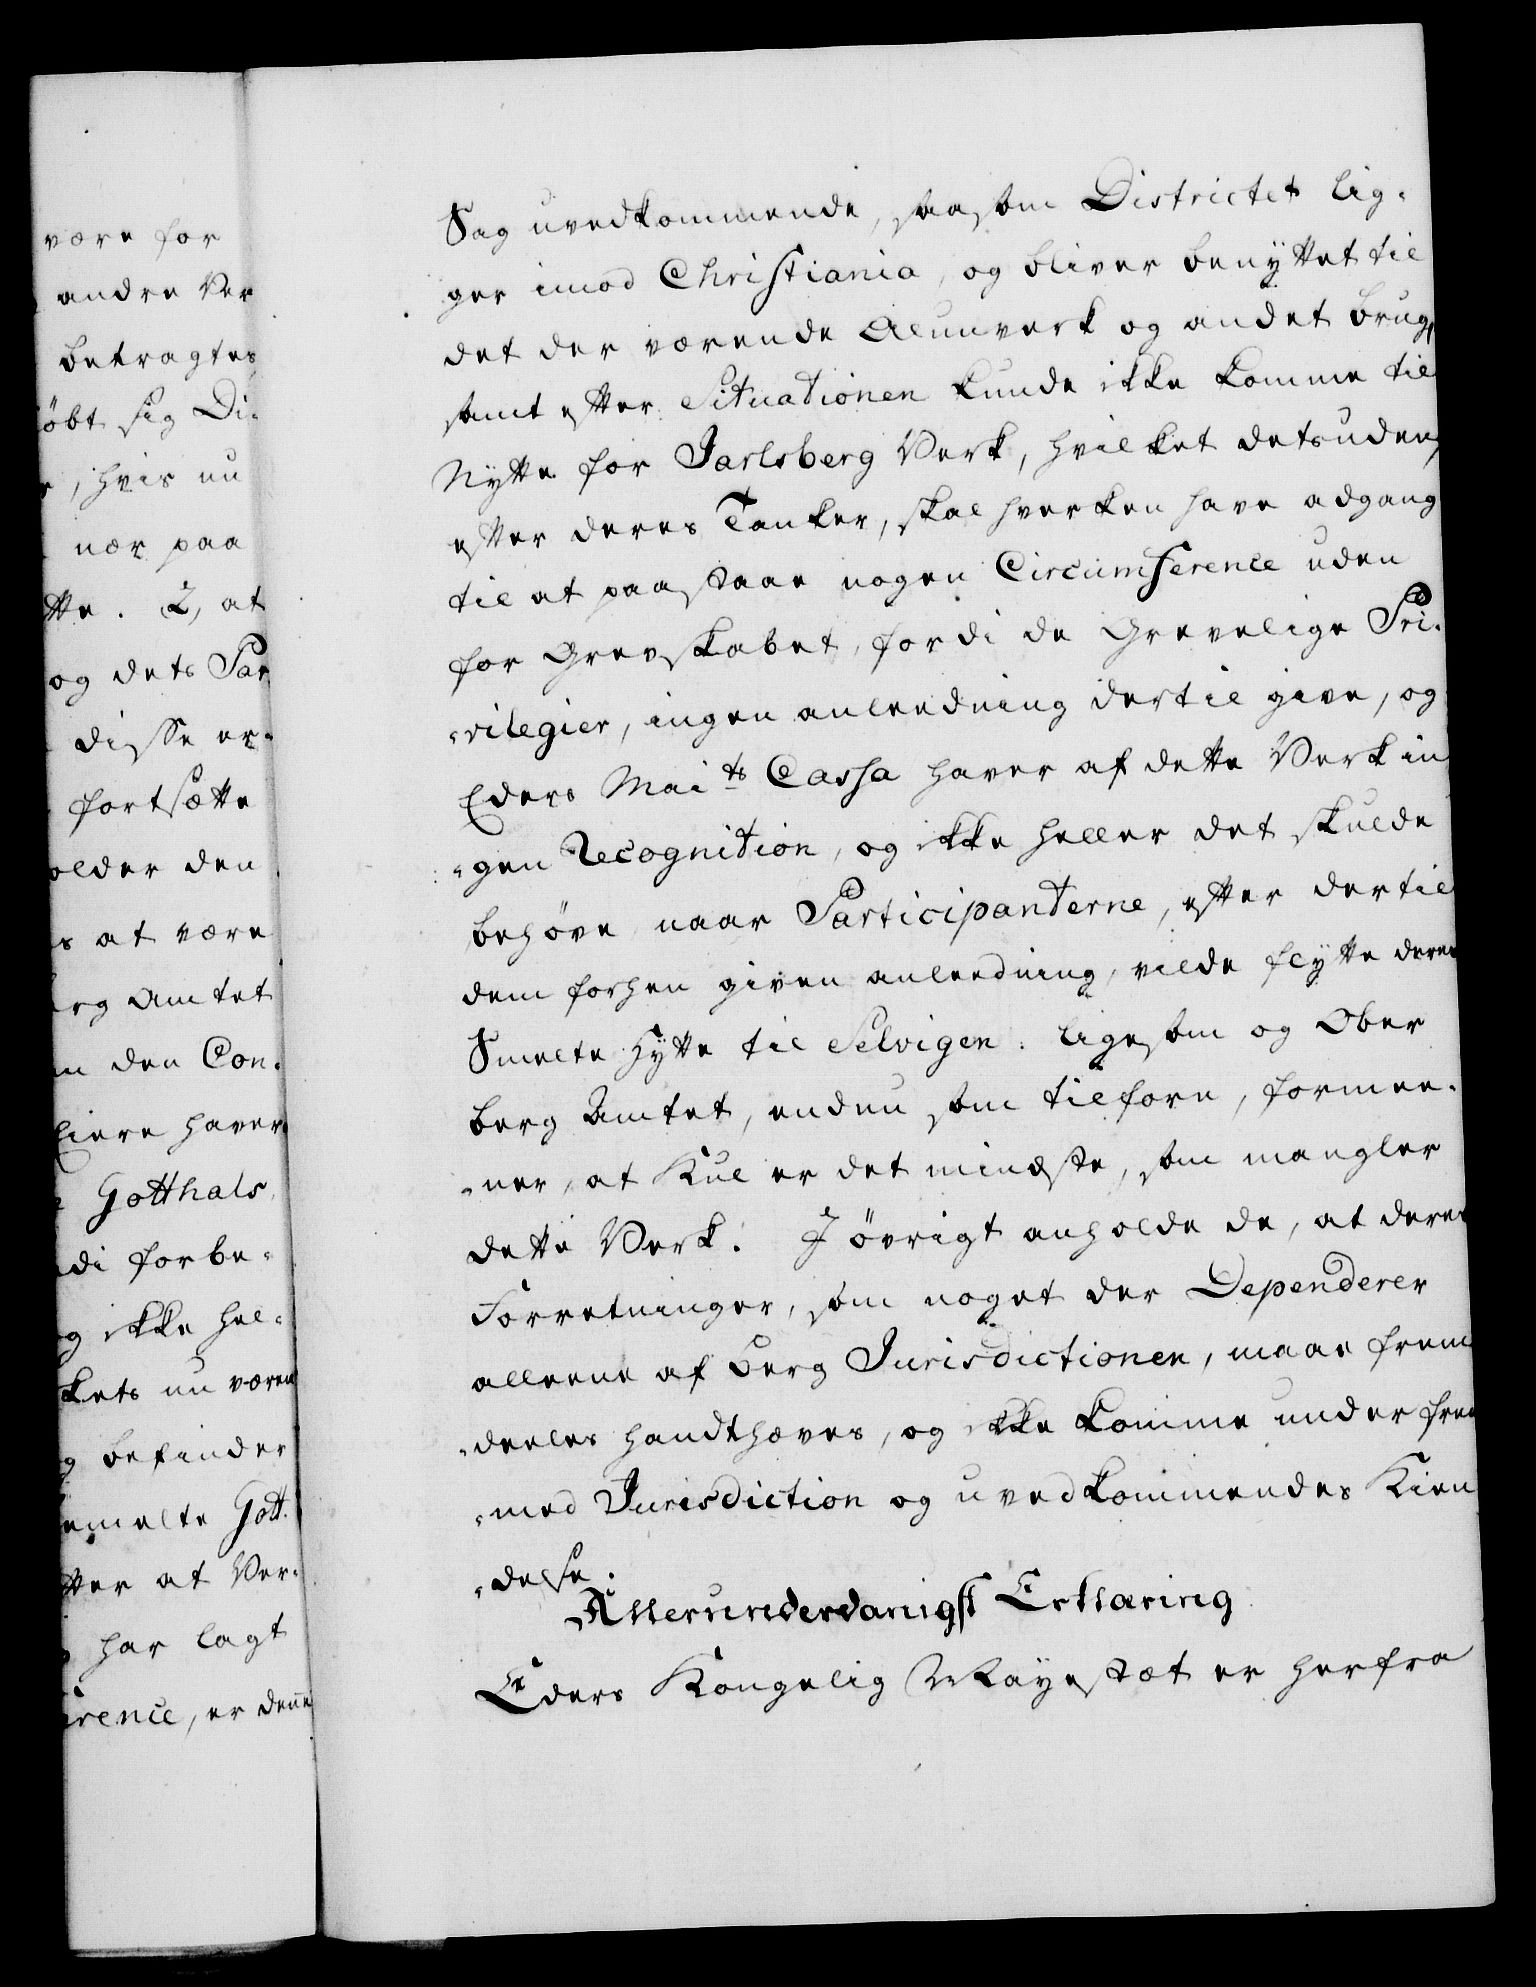 være for
andre Ver
betragtes
öbt sig Di-
, hvis nu
nær paa
tte. 2, at
og dets Par
disse er-
fortsætte
older den
s at være
erg Amtet
m den Con-
Eiere haver
Gotthals
di forbe-
og ikke hel-
kets nu væren
g befinder
emelte Gott-
tter at Ver-
har lagt
erence, er denne
Sag uvedkommende, saasom Districtet lig-
ger imod Christiania, og bliver benyttet til
det der værende Alunverk og andet brug,
samt efter Situationen kunde ikke komme til
Nytte for Jarlsberg Verk, hvilket detsuden,
efter deres Tanker, skal hverken have adgang
til at paastaae nogen Circumference uden
for Grevskabet, fordi de Grevelige Pri-
-vilegier, ingen anleedning dertil give, og
Eders Maits Cassa haver af dette Verk in
-gen Recognition, og ikke heller det skulde
behöve naar Participanterne, efter dertil
dem forhen given anleedning, vilde flytte deres
Smelte Hytte til Selvigen. ligesom og Ober
berg Amtet, endnu som tilforn, formee-
-ner, at Kul er det mindste, som mangler
dette Verk. J övrigt anholde de, at deres
Forretninger, som noget der Dependerer
alleene af Berg Jurisdictionen, maae frem
-deeles handthæves, og ikke komme under frem
-med Jurisdiction og uvedkommendes Kien
-delse.
Allerunderdanigst Erklæring
Eders Kongelig Mayestæt er herfra